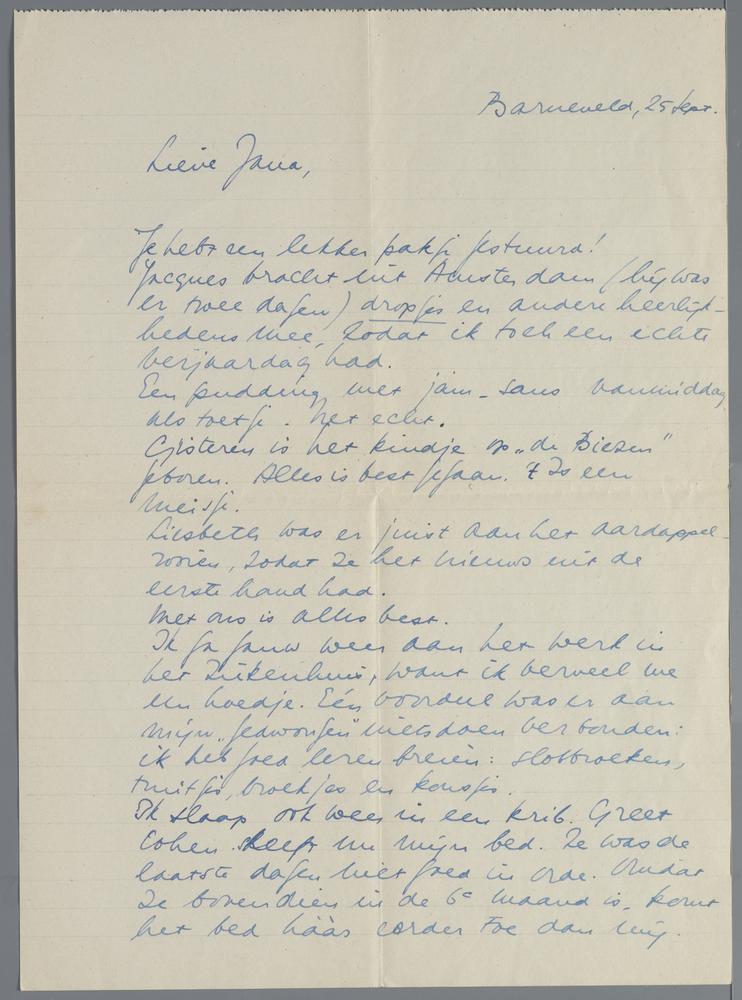 Barneveld, 25 Sept.
Lieve Jana,
Je hebt een lekker pakje gestuurd!
Jacques bracht uit Amsterdam (hij was
er twee dagen) dropjes en andere heerlijk-
hedens mee, zodat ik toch een echte
verjaardag had.
Een pudding met jam-saus vanmiddag
als toetje. Net echt.
Gisteren is het kindje op „de Biezen"
geboren. Alles is best gegaan. 't Is een
meisje.
Liesbeth was er juist aan het aardappel-
rooien, zodat ze het nieuws uit de
eerste hand had.
Met ons is alles best.
Ik ga gauw weer aan het werk in
het Ziekenhuis, want ik verveel me
een hoedje. Eén voordeel was er aan
mijn „gedwongen" nietsdoen verbonden:
ik heb goed leren breien: slobbroeken,
truitjes, broekjes en kousjes.
Ik slaap ook weer in een krib. Greet
Cohen heeft nu mijn bed. Ze was de
laatste dagen niet goed in orde. Omdat
ze bovendien in de 6e maand is, komt
het bed háár eerder toe dan mij.